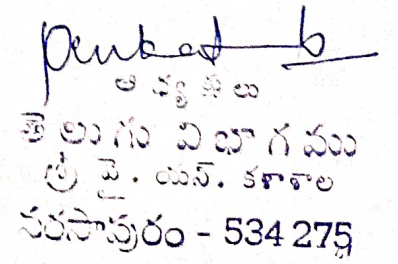 అధ్యక్షులు
తెలుగు విభాగము
శ్రీ వై. యన్. కళాశాల
నరసాపురం - 534 275